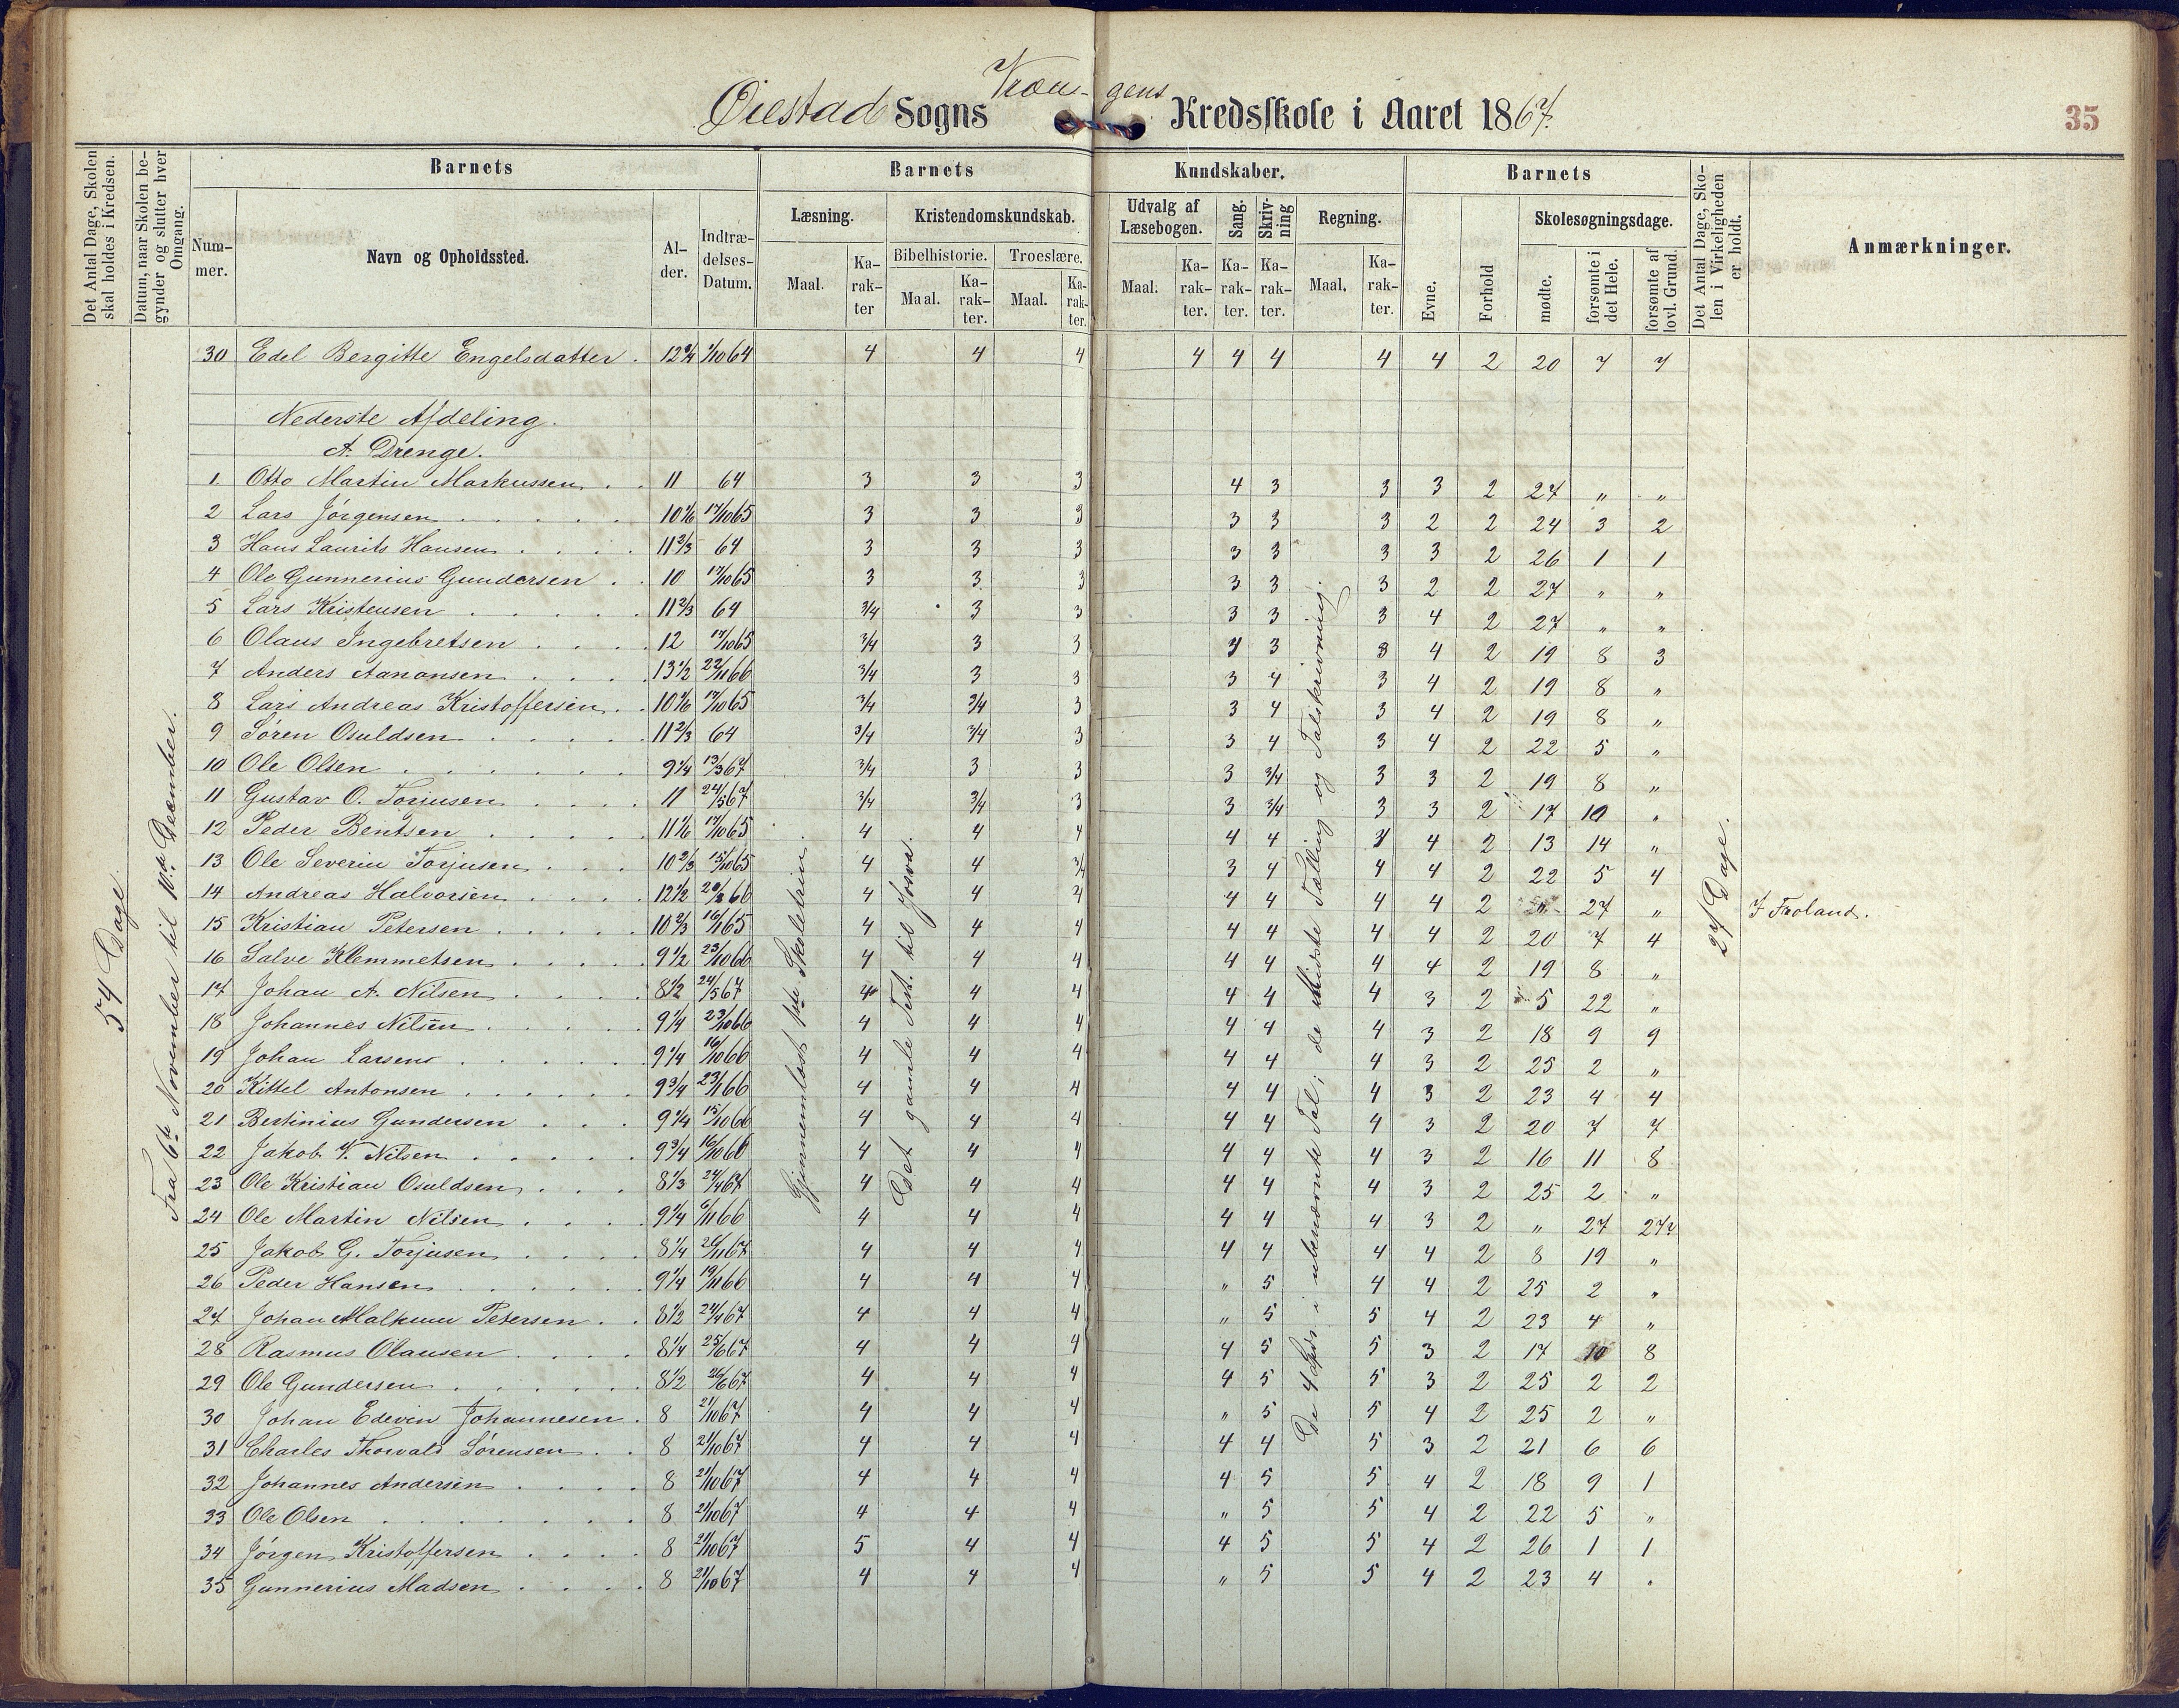 Øiestad Sogns Kredsskole i Aaret 1867.
35
Det Antal Dage, Skolen skal holdes i Kredsen.
Datum, naar Skolen begynder og slutter hver Omgang.
Barnets
Nummer.
Navn og Opholdssted.
Alder.
Indtrædelses-Datum.
Barnets Kundskaber.
Læsning.
Maal.
Karakter
Kristendomskundskab.
Bibelhistorie.
Maal.
Karakter.
Troeslære.
Maal.
Karakter.
Udvalg af Læsebogen.
Maal.
Karakter.
Sang.
Karakter.
Skrivning
Karakter.
Regning.
Maal.
Karakter.
Barnets
Evne.
Forhold
Skolesøgningsdage.
mødte.
forsømte i det Hele.
forsømte af lovl. Grund.
Det Antal Dage, Skolen i Virkeligheden er holdt.
Anmærkninger.
54 Dage.
Fra 6te November til 10de December.
Gjennemlæst 1ste Skoletrin
Det gamle Test. til Josva.
De 4 Spec. i ubenævnte Tal; de Tælling og Talskrivning.
27 Dage.
30 Edel Bergitte Engelsdatter . 12 3/4 1/10 64 4 4 4 4 4 4 4 4 2 20 7 7
Nederste Afdeling.
A. Drenge.
1. Otto Martin Markussen 11 64 3 3 3 4 3 3 3 2 27 " "
2 Lars Jørgensen 10 1/6 17/10 65 3 3 3 3 3 3 2 2 24 3 2
3 Hans Laurits Hansen 11 2/3 64 3 3 3 3 3 3 3 2 26 1 1
4 Ole Gunnerius Gundersen 10 17/10 65 3 3 3 3 3 3 2 2 27 " "
5 Lars Kristensen 11 2/3 64 3/4 3 3 3 3 3 4 2 27 " "
6 Olaus Ingebretsen 12 17/10 65 3/4 3 3 3 3 4 2 19 8 3
7 Anders Aanonsen 13 1/2 22/11 66 3/4 3 3 3 4 3 4 2 19 8 "
8 Lars Andreas Kristoffersen 10 1/6 17/10 65 3/4 3/4 3 3 4 3 4 2 19 8 "
9 Søren Osuldsen 11 2/3 64 3/4 3/4 3 3 4 3 4 2 22 5 "
10 Ole Olsen 9 1/4 13/3 67 3/4 3 3 3 3/4 3 3 2 19 8 "
11 Gustav O. Torjusen 11 24/5 67 3/4 3/4 3 3 3/4 3 3 2 17 10 "
12 Peder Bentsen 11 1/6 17/10 65 4 4 4 4 4 4 2 13 14 "
13 Ole Severin Torjusen 10 2/3 15/10 65 4 4 3/4 3 4 4 4 2 22 5 4
14 Andreas Halvorsen 12 1/2 20/2 66 4 4 4 4 4 4 4 2 " 27 " I Froland.
15 Kristian Petersen 10 2/3 16/1 65 4 4 4 4 4 4 4 2 20 7 4
16 Salve Klemmetsen 9 1/2 23/10 66 4 4 4 4 4 4 4 2 19 8 "
17 Johan A. Nilsen 8 1/2 24/5 67 4 4 4 4 4 4 3 2 5 22 "
18 Johannes Nilsen 9 1/4 23/10 66 4 4 4 4 4 4 3 2 18 9 9
19 Johan Larsen 9 1/4 16/10 66 4 4 4 4 4 4 3 2 25 2 "
20 Kittel Antonsen 9 3/4 23/1 66 4 4 4 4 4 4 3 2 23 4 4
21 Bertinius Gundersen 9 1/4 15/10 66 4 4 4 4 4 4 3 2 20 7 7
22 Jakob V. Nilsen 9 3/4 16/10 66 4 4 4 4 4 4 3 2 16 11 8
23 Ole Kristian Osuldsen 8 1/3 24/4 67 4 4 4 4 4 4 3 2 25 2 "
24 Ole Martin Nilsen 9 1/4 6/11 66 4 4 4 4 4 4 3 2 " 27 27
25 Jakob G. Torjusen 8 1/4 26/11 67 4 4 4 4 4 4 4 2 8 19 "
26 Peder Hansen 9 1/4 19/11 66 4 4 4 " 5 4 4 2 25 2 "
27 Johan Petersen 8 1/2 24/4 67 4 4 4 " 5 5 4 2 23 4 "
28 Rasmus Olausen 8 1/4 25/6 67 4 4 4 4 5 5 3 2 17 10 8
29 Ole Gundersen 8 1/2 26/6 67 4 4 4 4 5 5 3 2 25 2 2
30 Johan Edevin Johannesen 8 21/10 67 4 4 4 " 5 5 4 2 25 2 "
31 Charles Thorvald Sørensen 8 21/10 67 4 4 4 4 4 5 3 2 21 6 6
32 Johannes Andersen 8 21/10 67 4 4 4 4 5 5 4 2 18 9 1
33 Ole Olsen 8 21/10 67 4 4 4 " 5 5 4 2 22 5 "
34 Jørgen Kristoffersen 8 21/10 67 5 4 4 4 5 5 4 2 26 1 1
35 Gunnerius Madsen 8 21/10 67 4 4 4 " 5 5 4 2 23 4 "